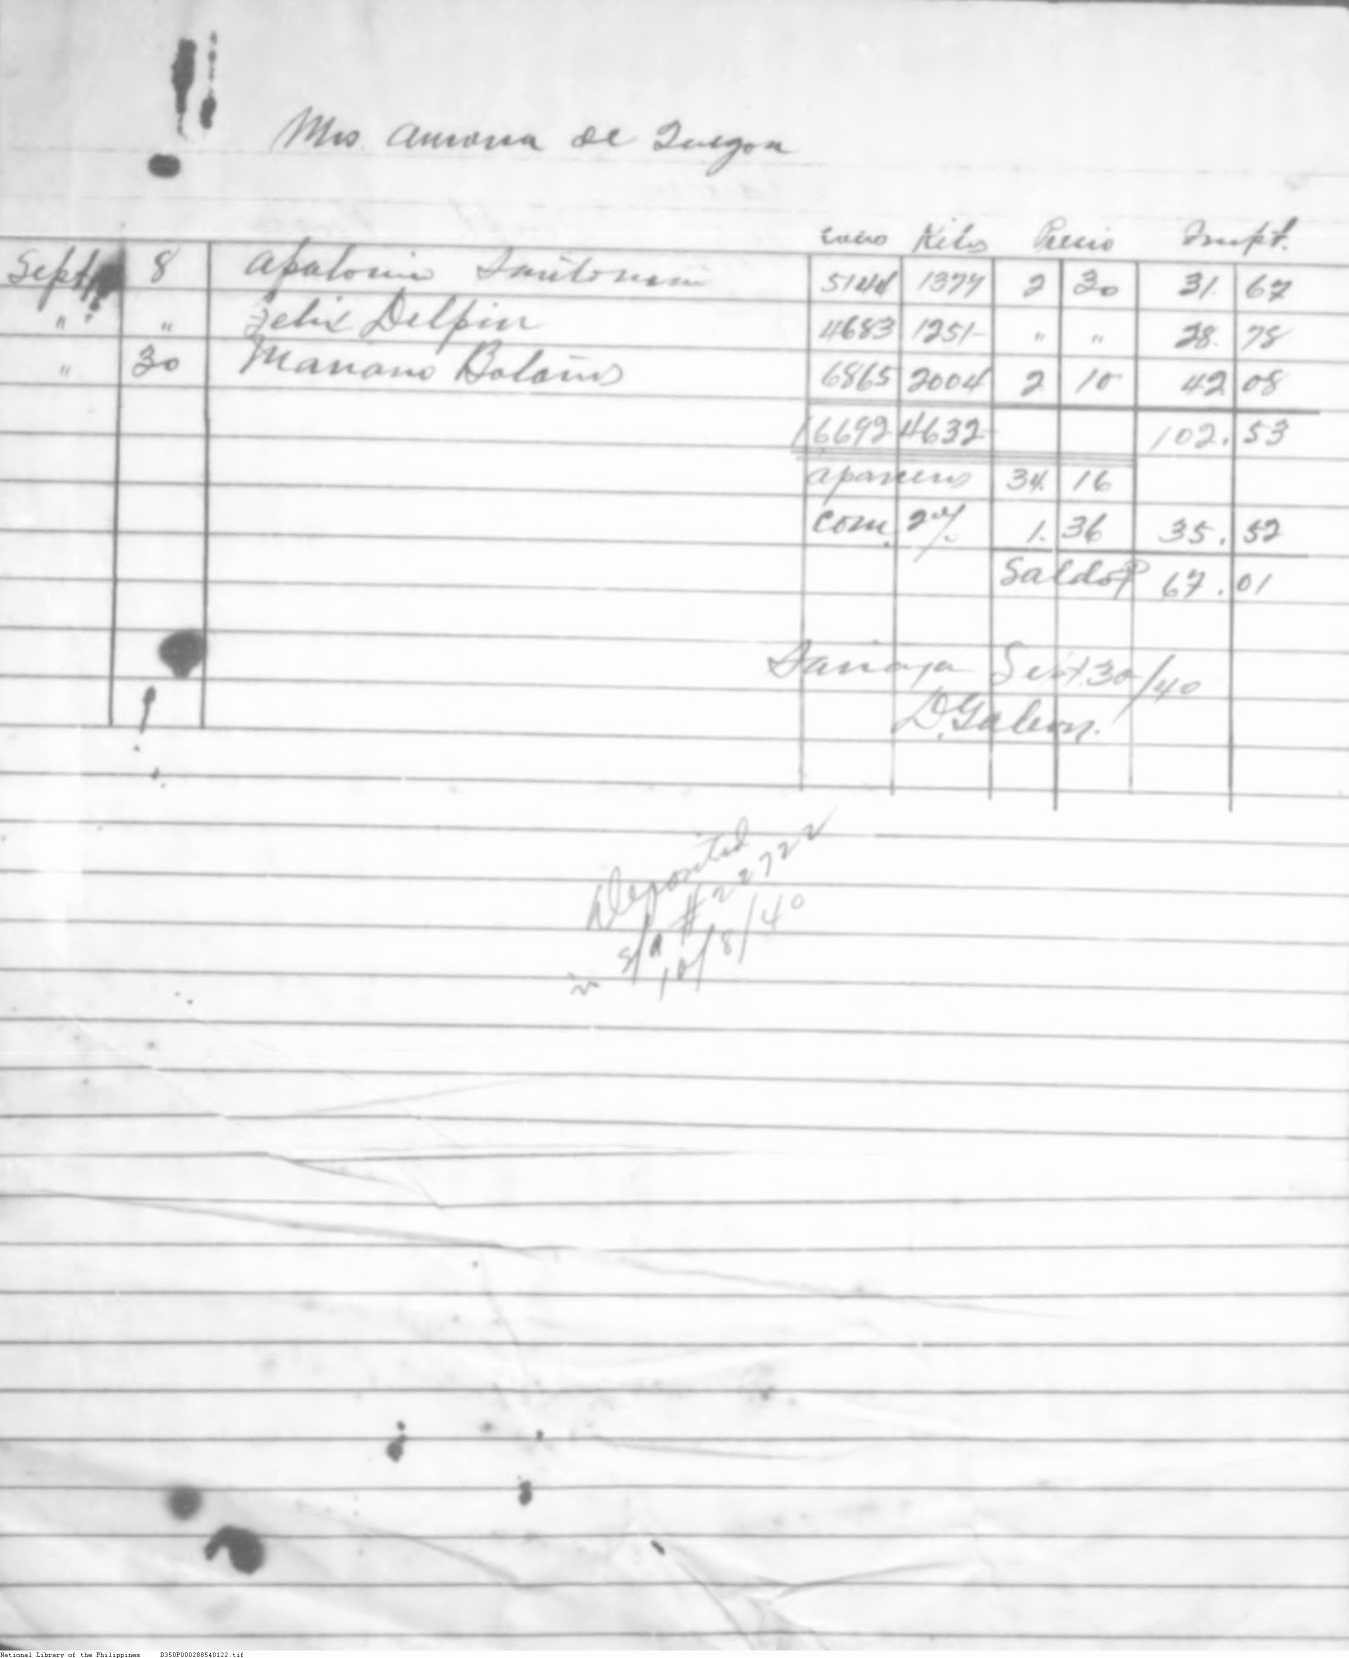 Mrs. Aurora de Quezon
Coco Kilos Precio Impt.
Sept. 8 Apolonio 5144 1377 2 30 31. 67
" " Felix Delfin 4683 1251 " " 28. 78
" 30 Mariano Bolaños 6865 2004 2 10 42 08
16692 4632 102. 53
aparceros 34. 16
Com. 2% 1. 36 35. 52
Saldo ₱ 67. 01
Sariaya Sept. 30/40
D. Galeon.
Deposited
in S/A #22722
10/8/40
National Library of the Philippines D350P000288540122.tif